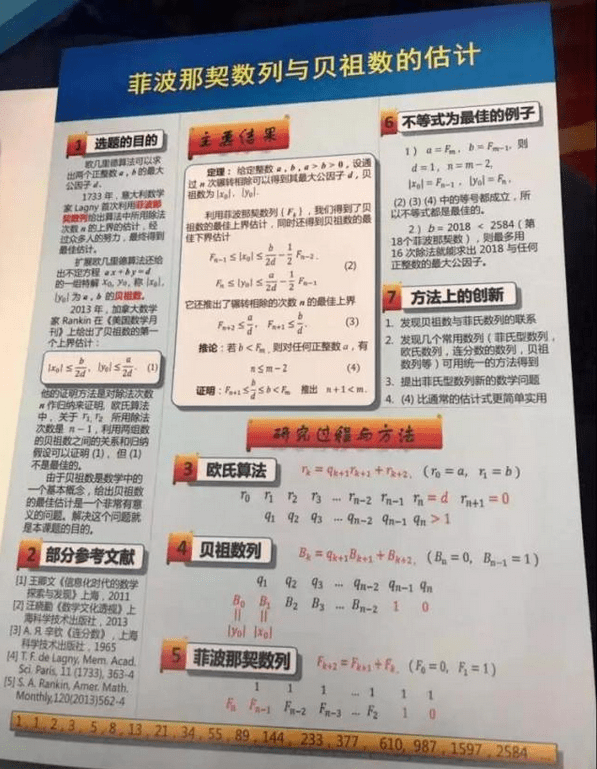 菲波那契数列与贝祖数的估计
1 选题的目的
欧几里德算法可以求
出两个正整数 a, b 的最大
公因子 d.
1733 年，意大利数学
家 Lagny 首次利用菲波那
契数列给出算法中所用除法
次数 n 的上界的估计，经
过众多人的努力，最终得到
最佳估计。
扩展欧几里德算法还给
出不定方程 ax+by=d
的一组特解 x₀, y₀, 称 |x₀|,
|y₀| 为 a, b 的贝祖数。
2013 年，加拿大数学
家 Rankin 在《美国数学月
刊》上给出了贝祖数的第一
个上界估计：
|x₀| ≤ b/2d, |y₀| ≤ a/2d. (1)
他的证明方法是对除法次数
n 作归纳来证明, 欧氏算法
中，关于 r₁, r₂ 所用除法
次数是 n − 1，利用两组数
的贝祖数之间的关系和归纳
假设可以证明 (1)、但 (1)
不是最佳的。
由于贝祖数是数学中的
一个基本概念，给出贝祖数
的最佳估计是一个非常有意
义的问题。解决这个问题就
是本课题的目的。
2 部分参考文献
[1] 王卿文《信息化时代的数学
探索与发现》上海，2011
[2] 汪晓勤《数学文化透视》上
海科学技术出版社，2013
[3] А. Я. 辛钦《连分数》，上海
科学技术出版社，1965
[4] T. F. de Lagny, Mem. Acad.
Sci. Paris, 11 (1733), 363-4
[5] S. A. Rankin, Amer. Math.
Monthly,120(2013)562-4
主要结果
定理：给定整数 a, b, a > b > 0, 设通
过 n 次辗转相除可以得到其最大公因子 d, 贝
祖数为 |x₀|, |y₀|.
利用菲波那契数列 {Fₖ}，我们得到了贝
祖数的最佳上界估计，同时还得到贝祖数的最
佳下界估计
Fₙ₋₁ ≤ |x₀| ≤ b/2d − 1/2 Fₙ₋₂.
(2)
Fₙ ≤ |y₀| ≤ a/2d − 1/2 Fₙ₋₁
它还推出了辗转相除的次数 n 的最佳上界
Fₙ₊₂ ≤ a/d, Fₙ₊₁ ≤ b/d. (3)
推论：若 b < Fₘ, 则对任何正整数 a，有
n ≤ m − 2 (4)
证明：Fₙ₊₁ ≤ b/d ≤ b < Fₘ 推出 n + 1 < m.
6 不等式为最佳的例子
1）a = Fₘ, b = Fₘ₋₁, 则
d = 1, n = m − 2,
|x₀| = Fₙ₋₁, |y₀| = Fₙ,
(2) (3) (4) 中的等号都成立，所
以不等式都是最佳的。
2）b = 2018 < 2584（第
18个菲波那契数），则最多用
16 次除法就能求出 2018 与任何
正整数的最大公因子。
7 方法上的创新
1. 发现贝祖数与菲氏数列的联系
2. 发现几个常用数列（菲氏型数列，
欧氏数列，连分数的数列，贝祖
数列等）可用统一的方法得到
3. 提出菲氏型数列新的数学问题
4. (4) 比通常的估计式更简单实用
研究过程与方法
3 欧氏算法 rₖ = qₖ₊₁rₖ₊₁ + rₖ₊₂, (r₀ = a, r₁ = b)
r₀ r₁ r₂ r₃ ... rₙ₋₂ rₙ₋₁ rₙ = d rₙ₊₁ = 0
q₁ q₂ q₃ ... qₙ₋₂ qₙ₋₁ qₙ > 1
4 贝祖数列 Bₖ = qₖ₊₁Bₖ₊₁ + Bₖ₊₂, (Bₙ = 0, Bₙ₋₁ = 1)
q₁ q₂ q₃ ... qₙ₋₂ qₙ₋₁ qₙ
B₀ B₁ B₂ B₃ ... Bₙ₋₂ 1 0
|| ||
|y₀| |x₀|
5 菲波那契数列 Fₖ₊₂ = Fₖ₊₁ + Fₖ, (F₀ = 0, F₁ = 1)
1 1 1 ... 1 1 1
Fₙ Fₙ₋₁ Fₙ₋₂ Fₙ₋₃ ... F₂ 1 0
1, 1, 2, 3, 5, 8, 13, 21, 34, 55, 89, 144, 233, 377, 610, 987, 1597, 2584 ...